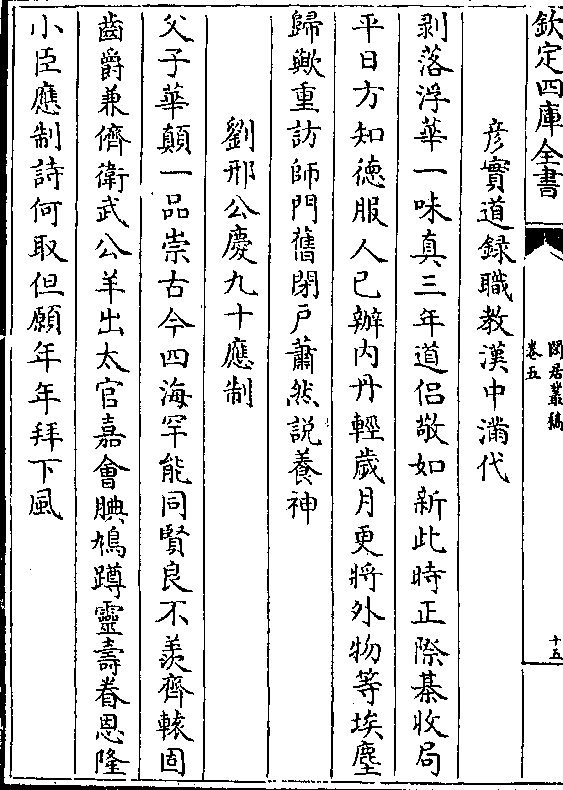 欽定四庫全書
閑居叢稿
卷五
十五
彦實道録職教漢中滿代
剥落浮華一味真三年道侣敬如新此時正際棊收局
平日方知德服人已辦内丹輕歲月更將外物等埃塵
歸歟重訪師門舊閉户蕭然説養神
劉邢公慶九十應制
父子華顛一品崇古今四海罕能同賢良不羡齊轅固
齒爵兼儕衛武公羊出太官嘉會腆鳩蹲靈壽眷恩隆
小臣應制詩何取但願年年拜下風